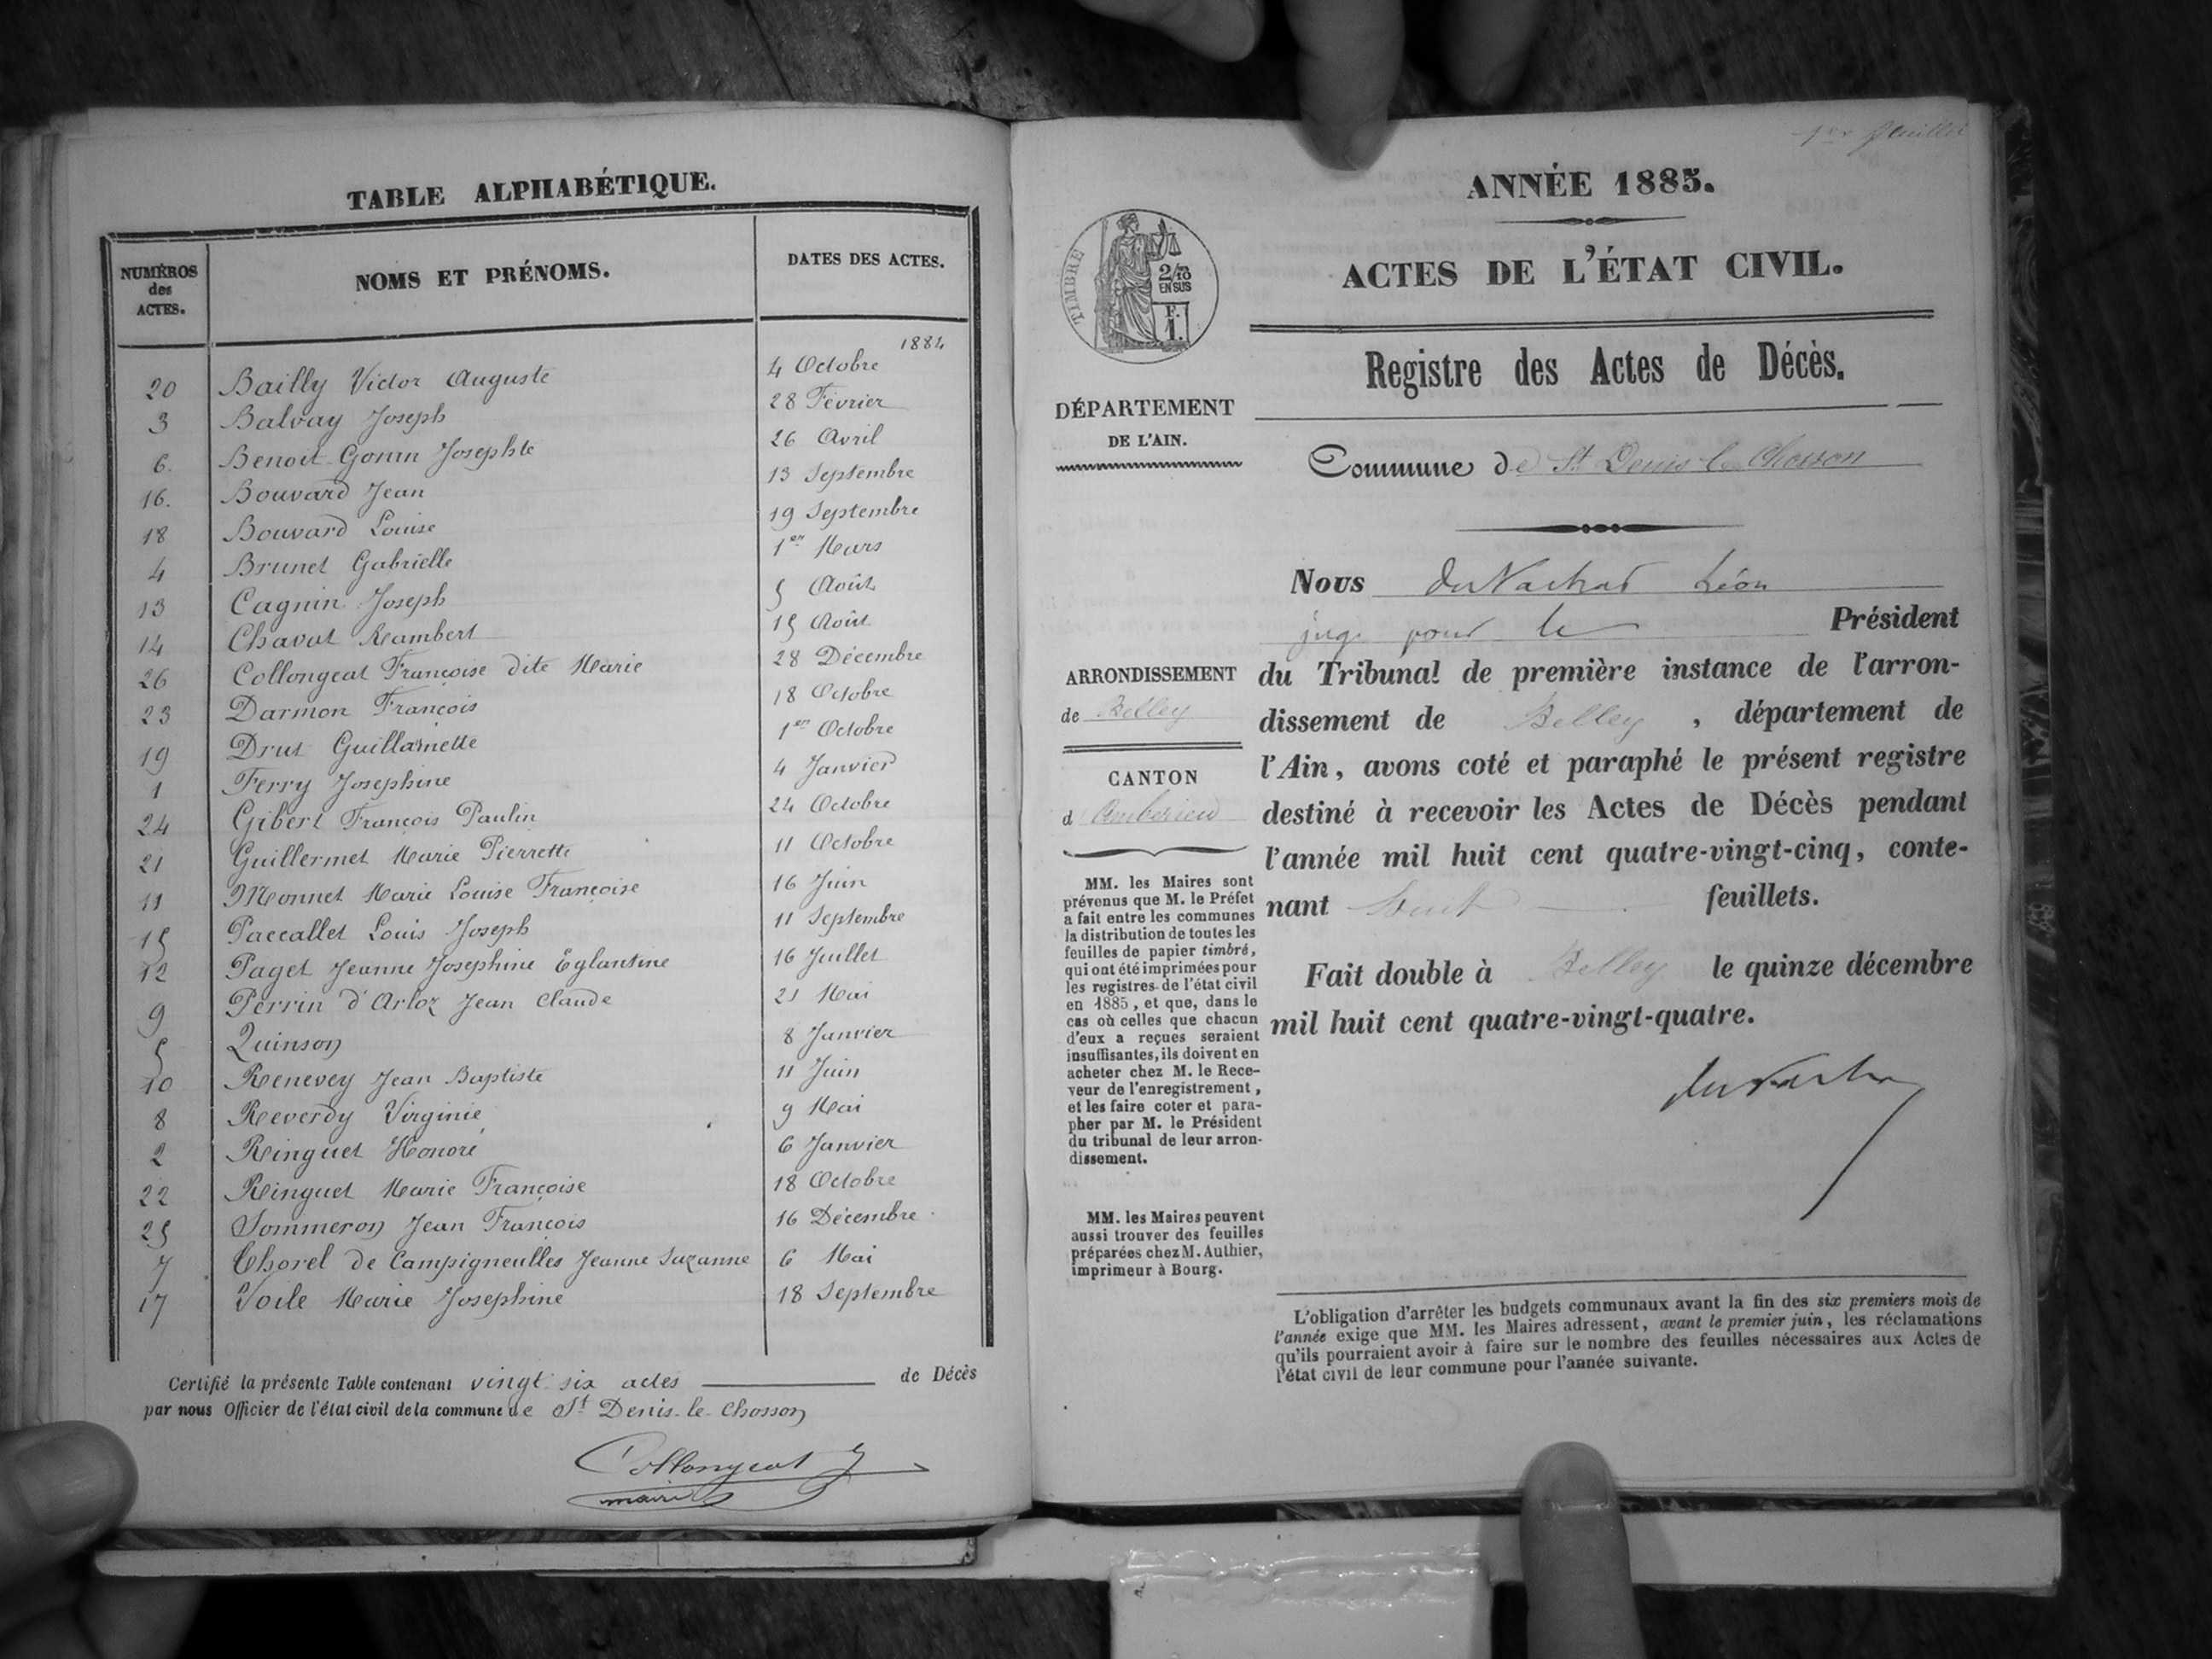 TABLE ALPHABÉTIQUE.
NUMÉROS des ACTES.
NOMS ET PRÉNOMS.
DATES DES ACTES.
1884
20 Bailly Victor Auguste 4 Octobre
3 Balvay Joseph 28 Février
6. Benoit-Gonin Josephte 26 Avril
16. Bouvard Jean 13 Septembre
18 Bouvard Louise 19 Septembre
4 Brunet Gabrielle 1er Mars
13 Cagnin Joseph 5 Août
14 Chavat Rambert 15 Août
26 Collongeat Françoise dite Marie 28 Décembre
23 Darmon François 18 Octobre
19 Drut Guillamette 1er Octobre
1 Ferry Josephine 4 Janvier
24 Gibert François Paulin 24 Octobre
21 Guillermet Marie Pierrette 11 Octobre
11 Monnet Marie Louise Françoise 16 Juin
15 Paccallet Louis Joseph 11 Septembre
12 Paget Jeanne Josephine Eglantine 16 Juillet
9 Perrin d'Arloz Jean Claude 21 Mai
5 Quinson 8 Janvier
10 Renevey Jean Baptiste 11 Juin
8 Reverdy Virginie 9 Mai
2 Ringuet Honoré 6 Janvier
22 Ringuet Marie Françoise 18 Octobre
25 Sommeron Jean François 16 Décembre
7 Chorel de Campigneulles Jeanne Suzanne 6 Mai
17 Voile Marie Josephine 18 Septembre
Certifié la présente Table contenant vingt six actes de Décès
par nous Officier de l'état civil de la commune de St Denis-le-Chosson
Collongeat
maire
1er feuillet
ANNÉE 1885.
ACTES DE L'ÉTAT CIVIL.
TIMBRE
2/10
EN SUS
F.
1.
Registre des Actes de Décès.
DÉPARTEMENT
DE L'AIN.
Commune de St Denis le Chosson
Nous Léon
juge pour le Président
ARRONDISSEMENT
de Belley
du Tribunal de première instance de l'arron-
dissement de Belley, département de
l'Ain, avons coté et paraphé le présent registre
destiné à recevoir les Actes de Décès pendant
l'année mil huit cent quatre-vingt-cinq, conte-
nant huit feuillets.
CANTON
d'Ambérieu
MM. les Maires sont
prévenus que M. le Préfet
a fait entre les communes
la distribution de toutes les
feuilles de papier timbré,
qui ont été imprimées pour
les registres de l'état civil
en 1885, et que, dans le
cas où celles que chacun
d'eux a reçues seraient
insuffisantes, ils doivent en
acheter chez M. le Rece-
veur de l'enregistrement,
et les faire coter et para-
pher par M. le Président
du tribunal de leur arron-
dissement.
MM. les Maires peuvent
aussi trouver des feuilles
préparées chez M. Authier,
imprimeur à Bourg.
Fait double à Belley le quinze décembre
mil huit cent quatre-vingt-quatre.
L'obligation d'arrêter les budgets communaux avant la fin des six premiers mois de
l'année exige que MM. les Maires adressent, avant le premier juin, les réclamations
qu'ils pourraient avoir à faire sur le nombre des feuilles nécessaires aux Actes de
l'état civil de leur commune pour l'année suivante.